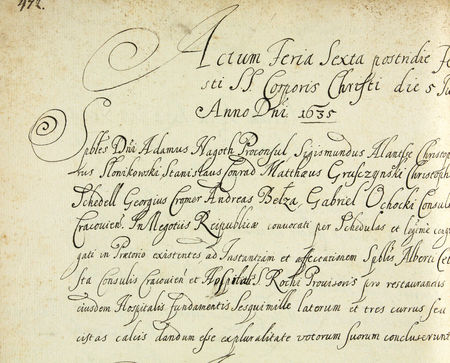 472.
Actum Feria Sexta postridie Fe
sti SS. Corporis Christi die 5 Ju
Anno Dni. 1635
Spbles Dni Adamus Nagoth Proconsul, Sigismundus Alantse Christop
rus Słonikowski Stanislaus Conrad Matthæus Gruszczynski Christoph
Schedell Georgius Cromer Andreas Belza, Gabriel Ochocki Consule
Cracouien. In Negotijs Reipublicæ conuocati per Schedulas et legitime congr
gati in Prætorio existentes ad Instantiam et affectationem Spblis Alberti
sta Consulis Cracouien et Hospitalis S Rochi Prouisoris pro restaurandis
eiusdem Hospitalis fundamentis Sesquimille laterum et tres currus seu
cistas calcis dandum esse ex pluralitate votorum suorum concluserunt